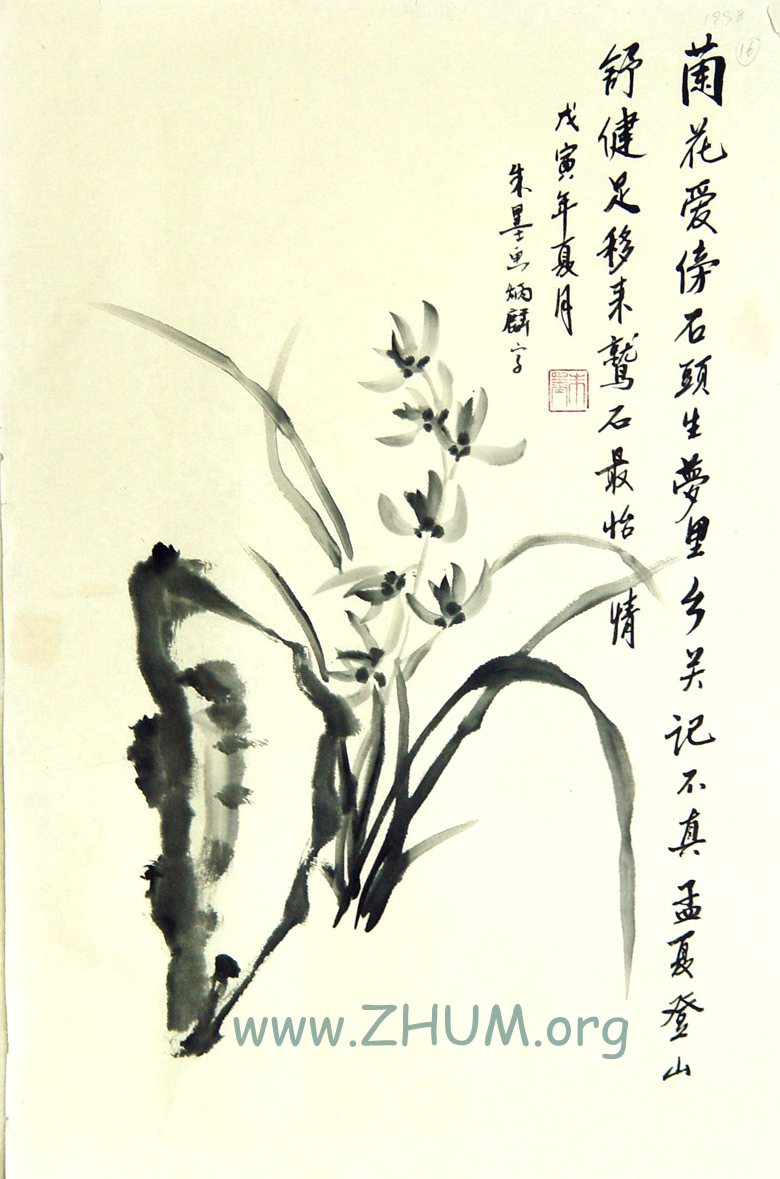 蘭花爱傍石頭生夢里乡关记不真孟夏登山
舒健足移来鹫石最怡情
戊寅年夏月
朱墨画炳麟字
朱墨
1998
16
www.ZHUM.org